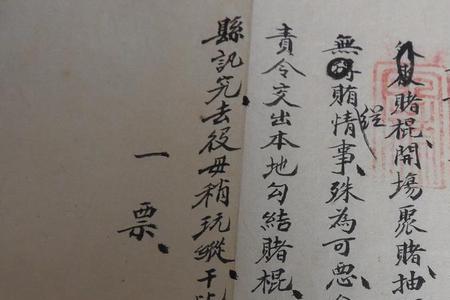 賭棍、開塲聚賭抽
無賄縱情事、殊為可惡
責令交出本地勾結賭棍、
縣訊究去役毋稍玩縱干
一票、